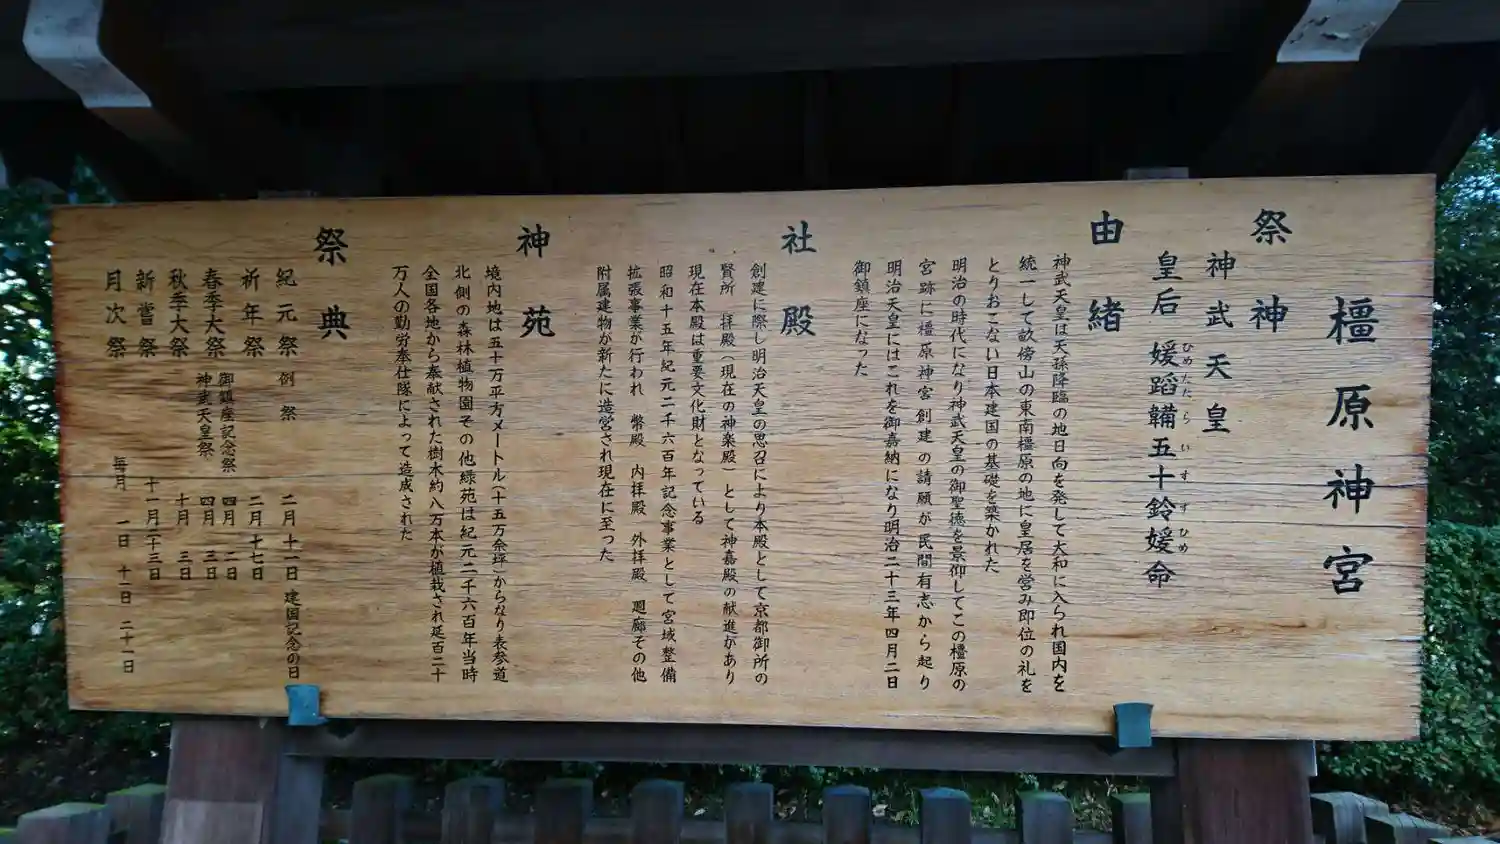 橿原神宮
祭神
神武天皇
皇后 媛蹈韛五十鈴媛命
ひめたたらいすずひめ
由緒
神武天皇は天孫降臨の地日向を発して大和に入られ国内を
統一して畝傍山の東南橿原の地に皇居を営み即位の礼を
とりおこない日本建国の基礎を築かれた
明治の時代になり神武天皇の御聖徳を景仰してこの橿原の
宮跡に橿原神宮創建の請願が民間有志から起り
明治天皇にはこれを御嘉納になり明治二十三年四月二日
御鎮座になった
社殿
創建に際し明治天皇の思召により本殿として京都御所の
賢所 拝殿(現在の神楽殿)として神嘉殿の献進があり
現在本殿は重要文化財となっている
昭和十五年紀元二千六百年記念事業として宮域整備
拡張事業が行われ 幣殿 内拝殿 外拝殿 廻廊その他
附属建物が新たに造営され現在に至った
神苑
境内地は五十万平方メートル(十五万余坪)からなり表参道
北側の森林植物園その他緑苑は紀元二千六百年当時
全国各地から奉献された樹木約八万本が植栽され延百二十
万人の勤労奉仕隊によって造成された
祭典
紀元祭 例祭 二月十一日 建国記念の日
祈年祭 二月十七日
春季大祭 御鎮座記念祭 四月二日
神武天皇祭 四月三日
秋季大祭 十月三日
新嘗祭 十一月二十三日
月次祭 毎月 一日 十一日 二十一日